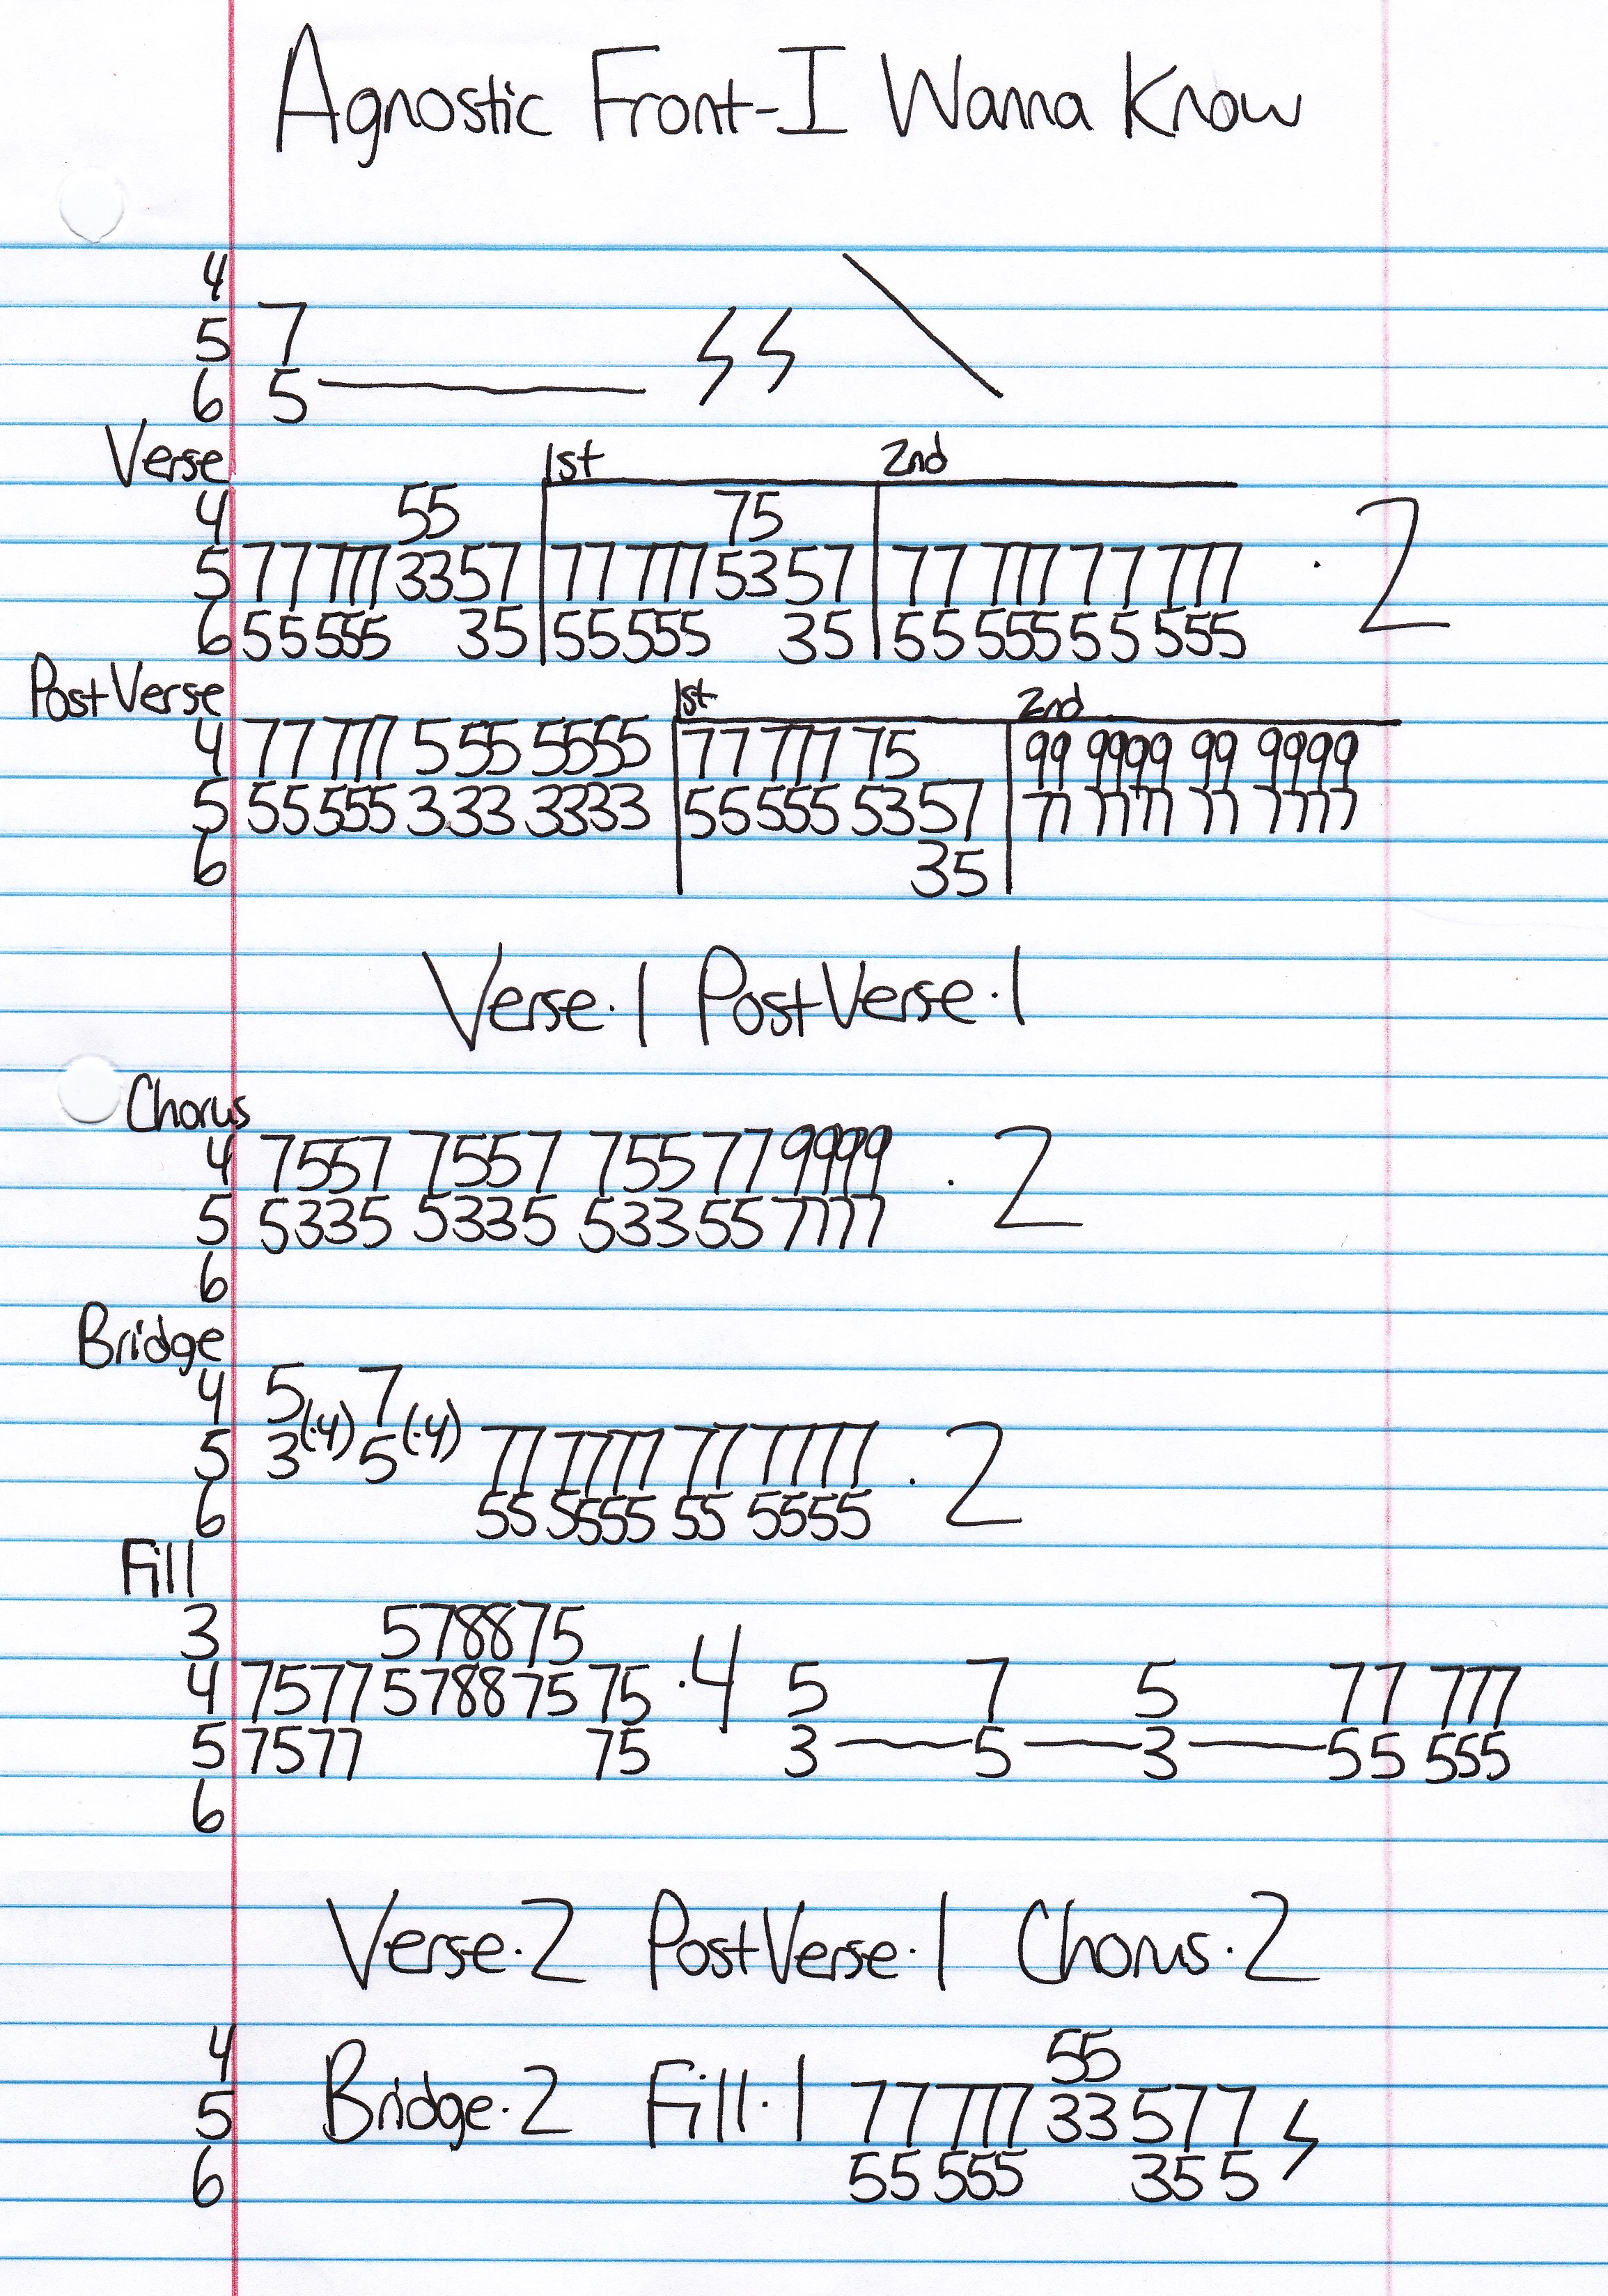 Agnostic Front-I Wanna Know
4
5 7
6 5
Verse 1st 2nd
4 55 75
5 77 777 33 57 77 777 53 57 77 777 77 777 · 2
6 55 555 35 55 555 35 55 555 55 555
Post Verse 1st 2nd
4 77 777 5 55 5555 77 777 75 99 9999 99 9999
5 55 555 3 33 3333 55 555 53 57 77 7777 77 7777
6 35
Verse·1 Post Verse·1
Chorus
4 7557 7557 755 77 9999 · 2
5 5335 5335 533 55 7777
6
Bridge
4 5 7
5 3(·4) 5(·4) 77 7777 77 7777 · 2
6 55 5555 55 5555
Fill
3 578875
4 7577 578875 75 ·4 5 7 5 77 777
5 7577 75 3 5 3 55 555
6
Verse·2 Post Verse·1 Chorus·2
4 55
5 Bridge·2 Fill·1 77 777 33 57 7
6 55 555 35 5